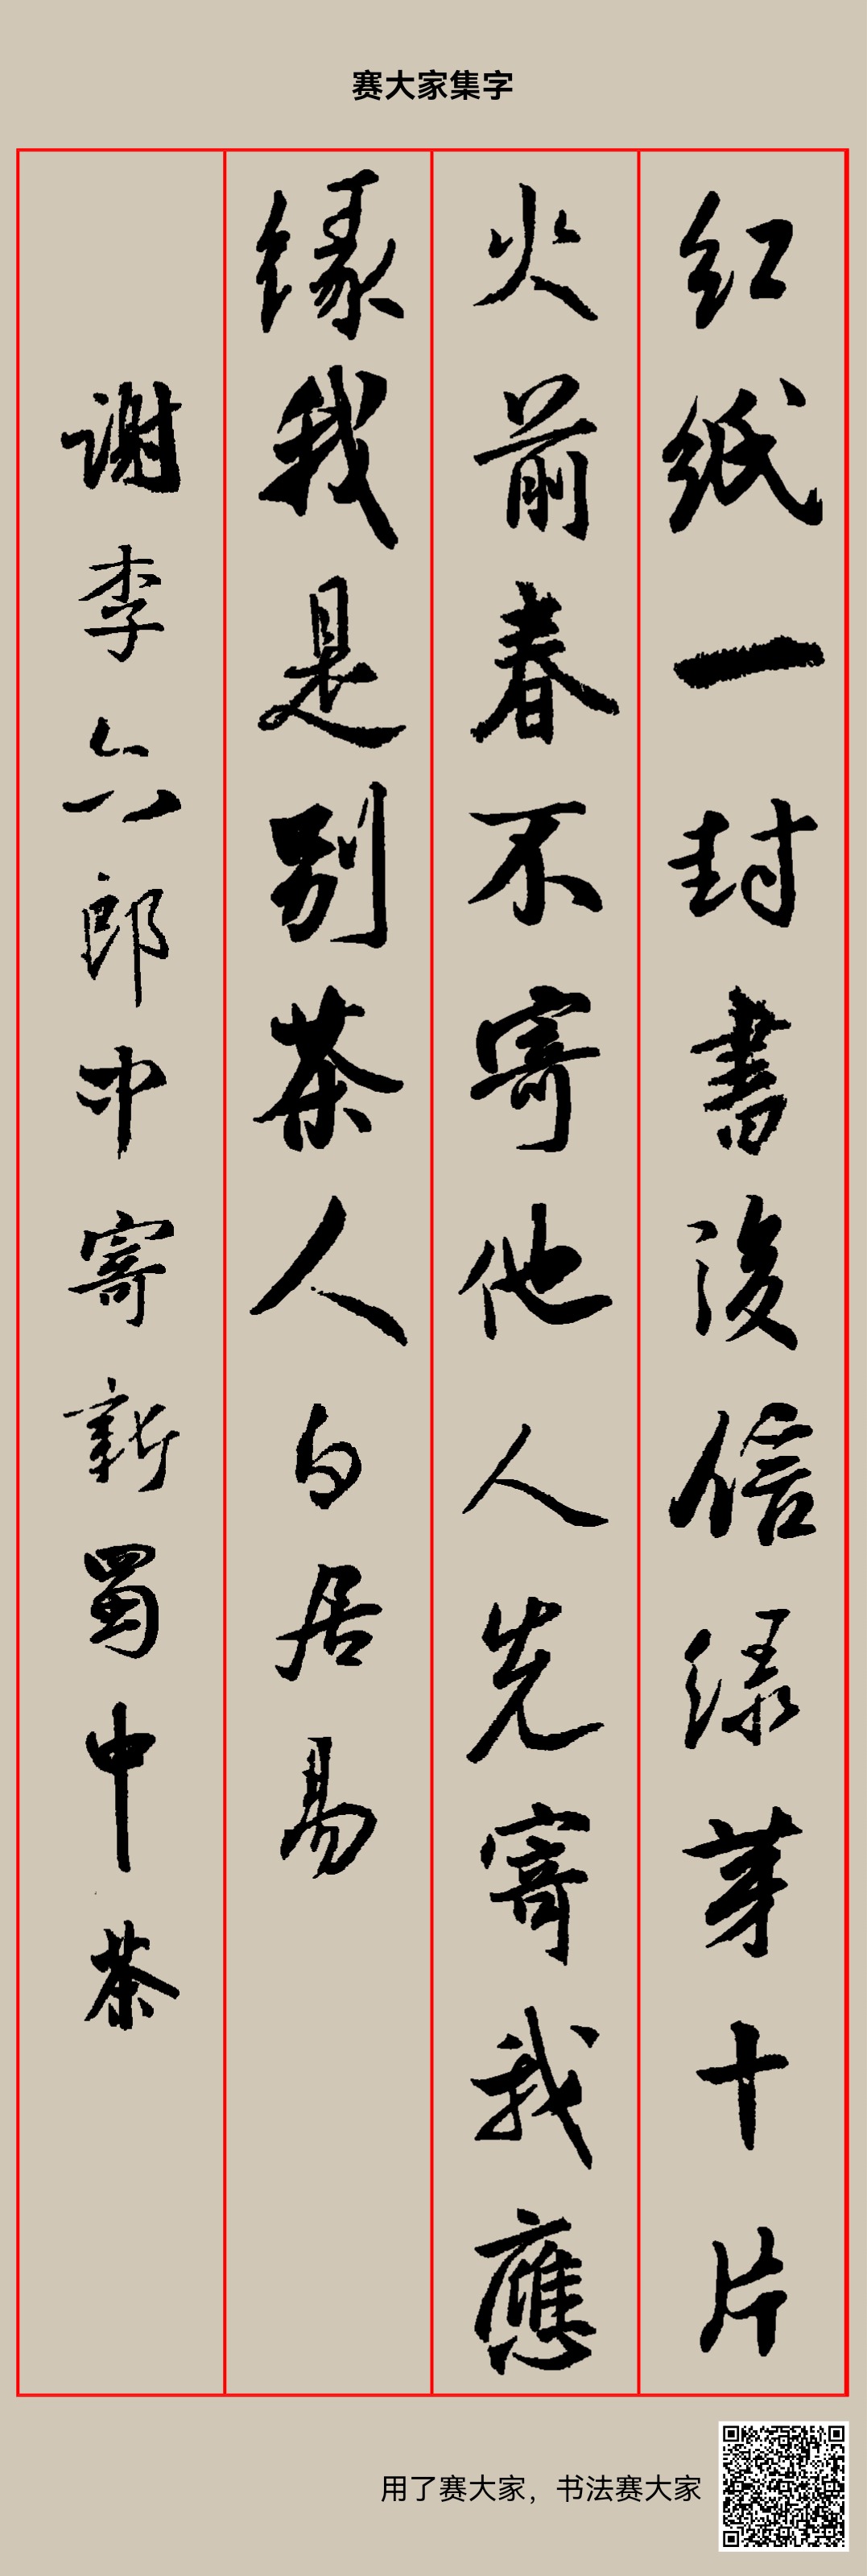 赛大家集字
红纸一封書後信绿芽十片
火前春不寄他人先寄我應
缘我是别茶人白居易
谢李六郎中寄新蜀中茶
用了赛大家，书法赛大家